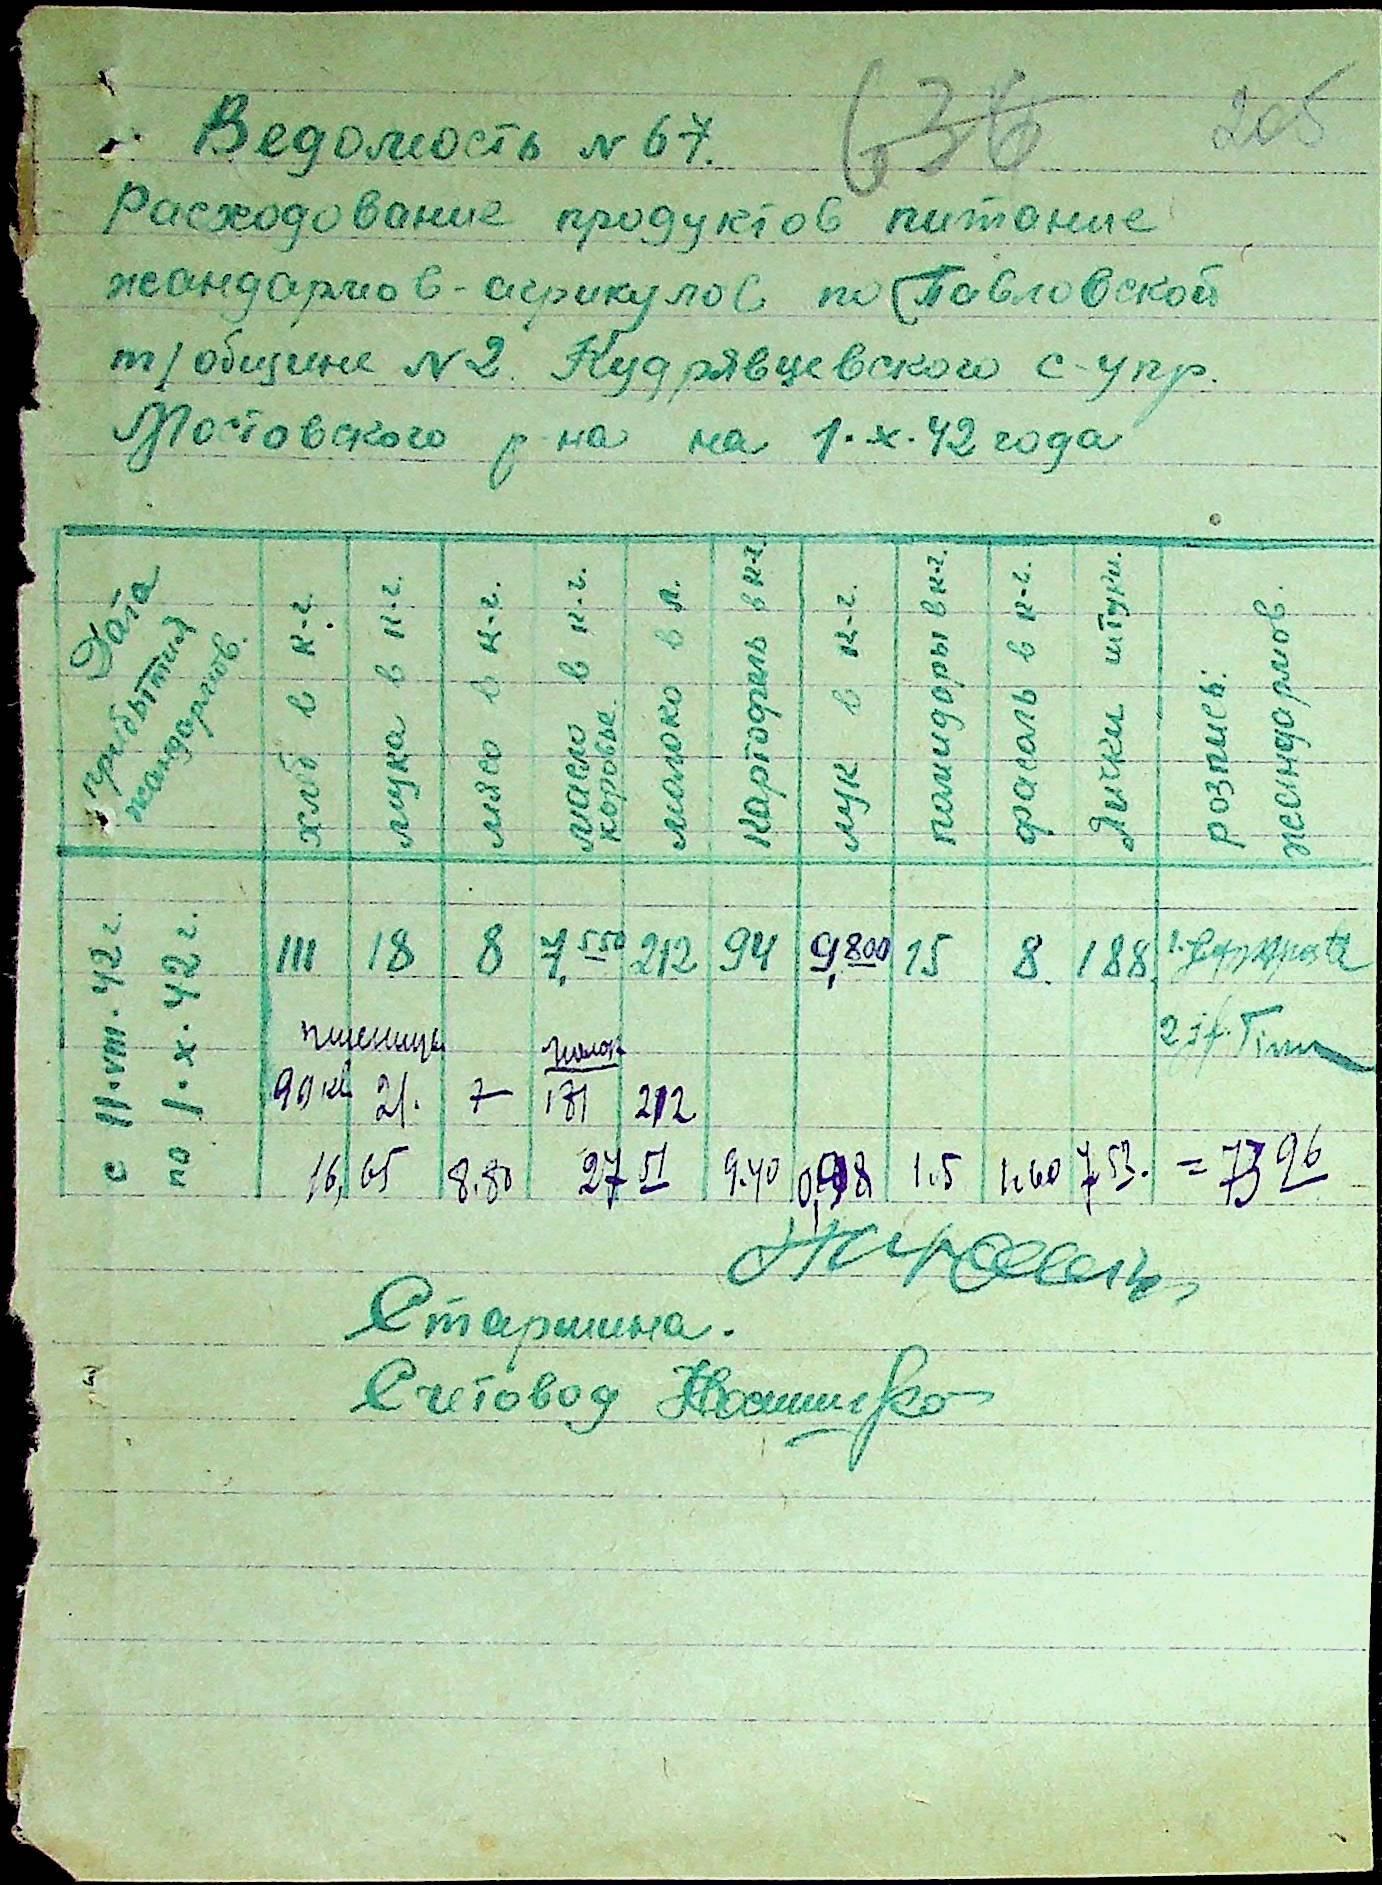 636 205
Ведомость № 67.
Расходование продуктов питание
жандармов-агрикулов по Павловской
т/общине №2. Кудрявцевского с-упр.
Мостовского р-на на 1.х.42 года
Дата прибытия жандармов. хлеб в к-г. мука в к-г. мясо в к-г. масло коровье. в к-г. молоко в л. Картофель в к-г. лук в к-г. помидоры в к-г. фасоль в к-г. Яички штуки. розпись жандармов.
с 11.VIII.42 г. по 1.х.42 г. 111 18 8 7,550 212 94 9,800 15 8. 188. 1.
2
пшеницы молок
90 21. 7 181 212
16,65 8.80 27 51 9.40 0,98 1.5 1.60 7.53. = 73 96
Старшина.
Счетовод